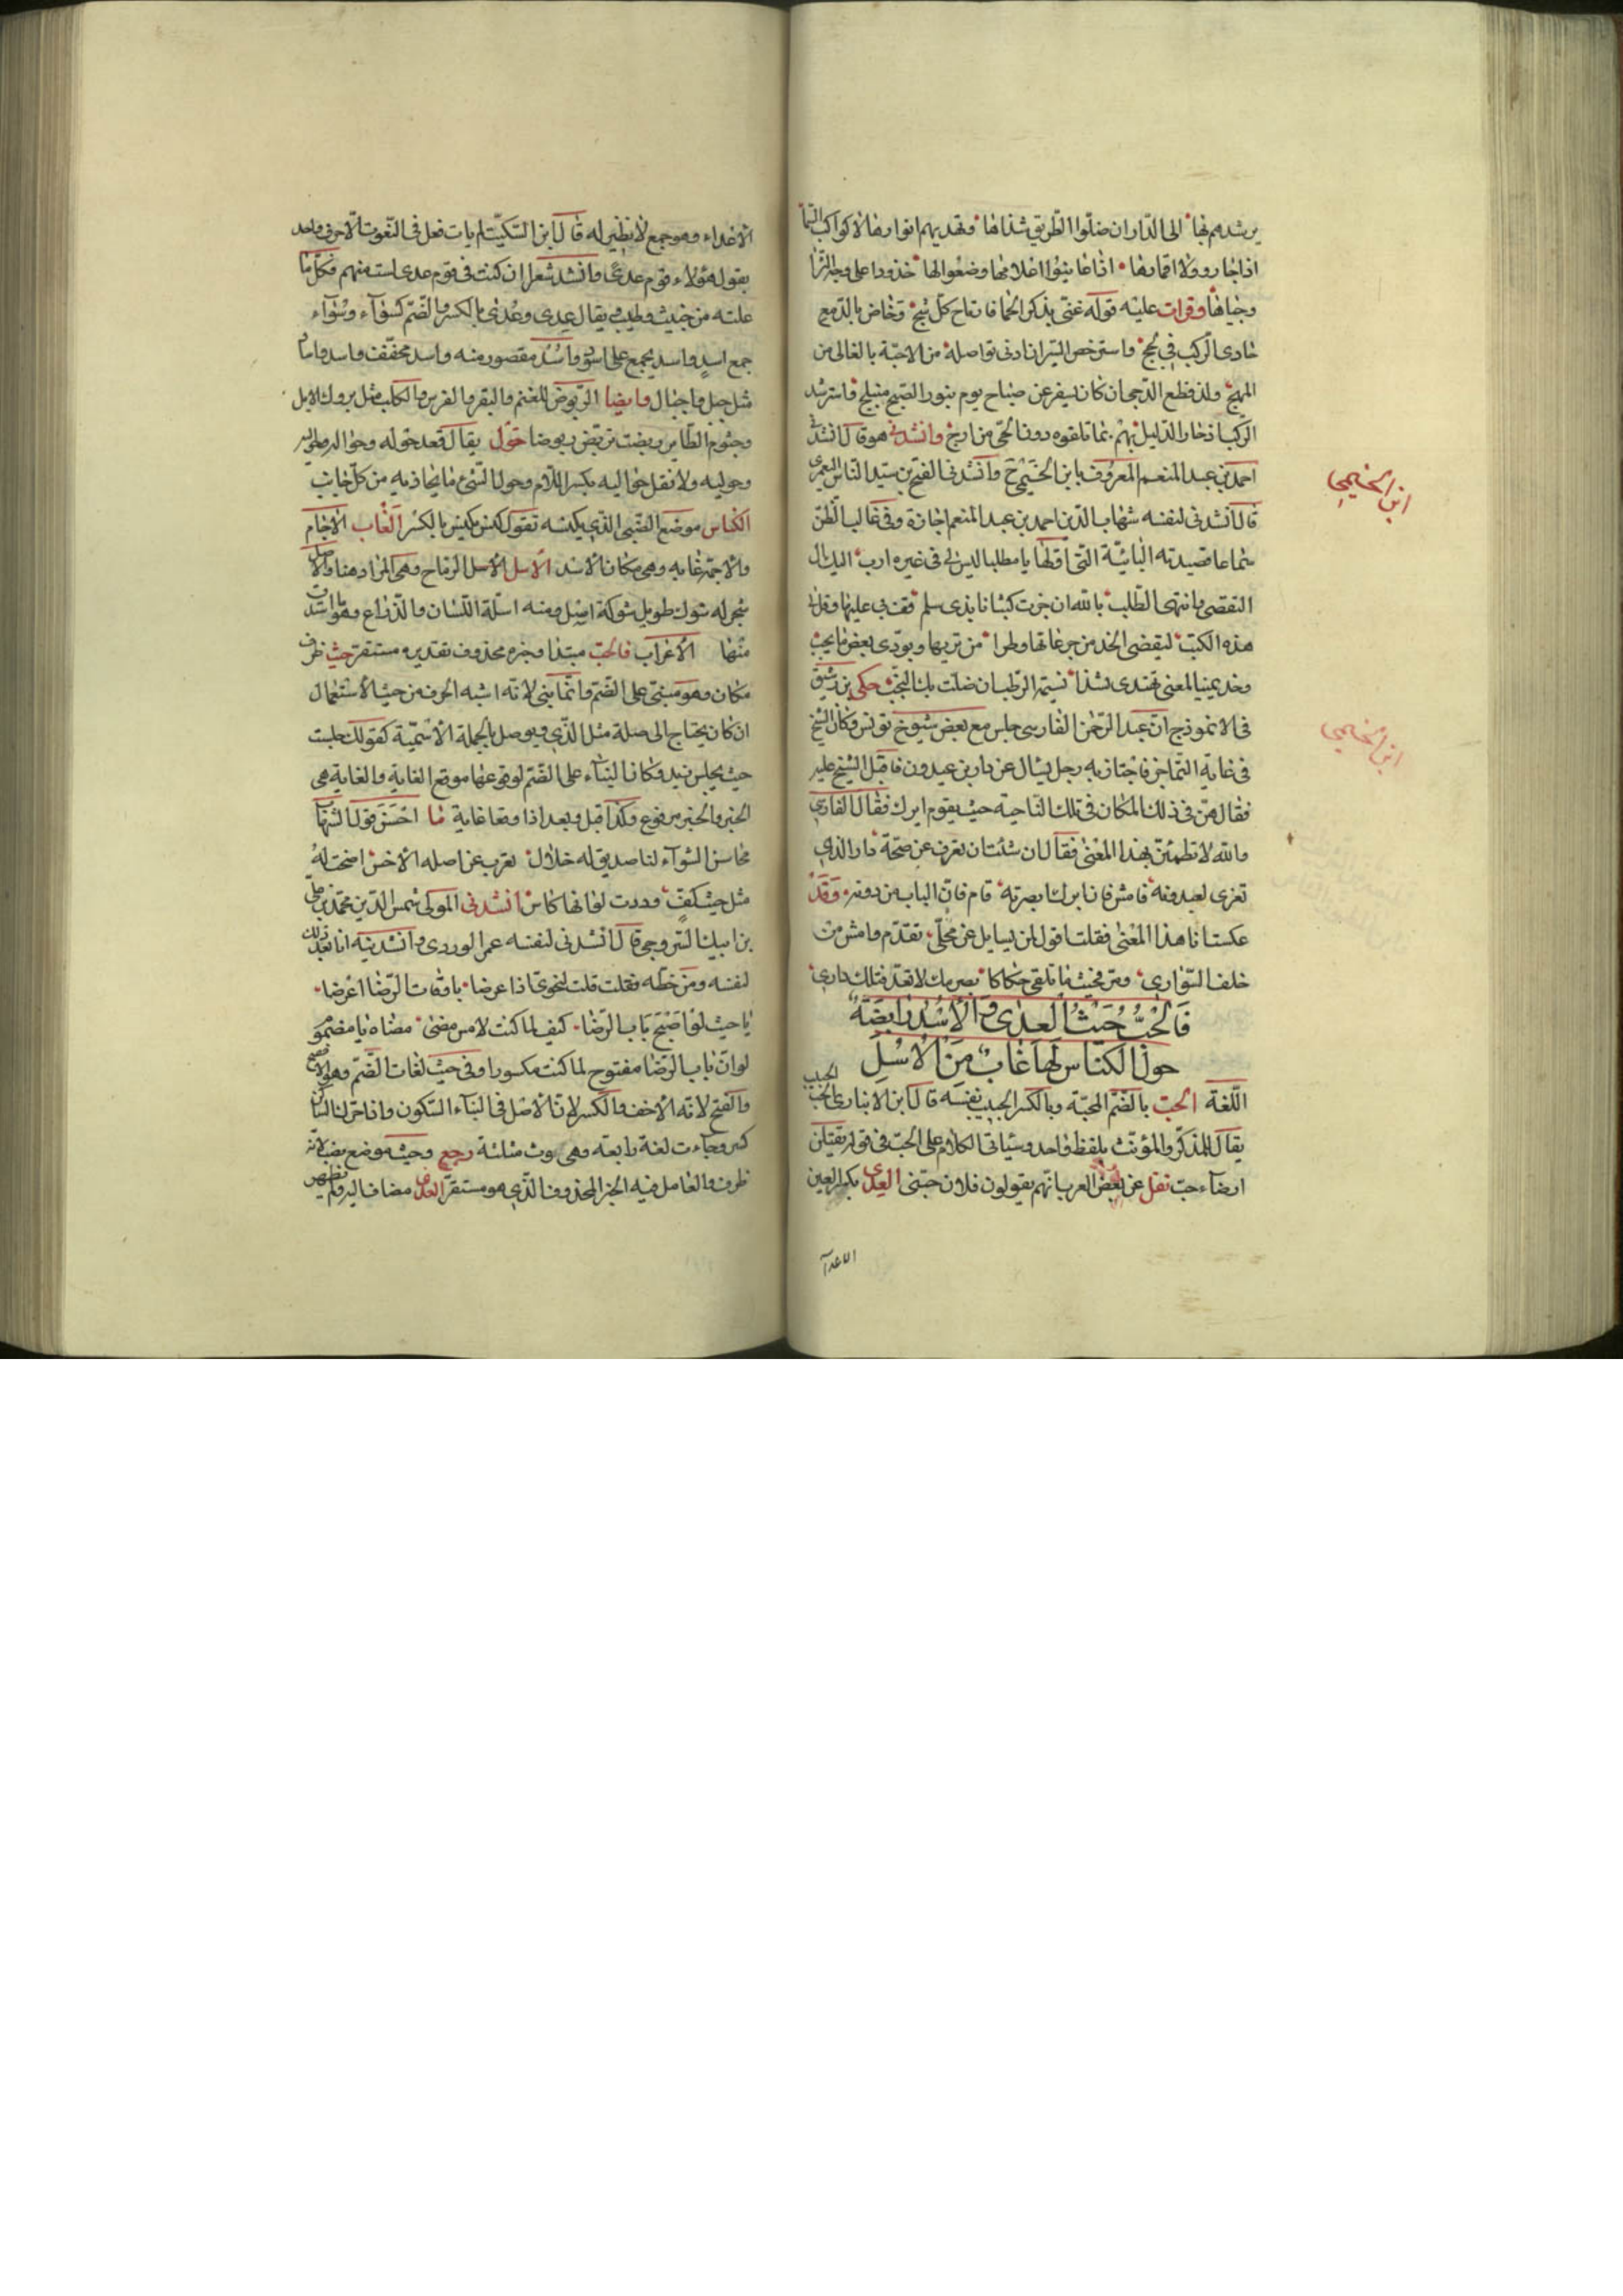 يرشدهم بها الى الدار ان ضلوا الطريق شذاها وتهديهم انوارها لا كواكب السما
اذا جاروا ولا اقمارها اذا عاينوا اعلامها وضعوا لها خدودا على وجه الثرا
وجباها وقرات عليه قوله غنى بذكر الحما فارتاح كل شج وخاض بالدمع
حادى الركب فى لجج واسترخص السير ان ادنى تواصله من الاحبة بالغالى من
المهج ولذ قطع الدجى ان كان يسفر عن صباح يوم بنور الصبح منبلج واسترشد
الركب اذ حار الدليل بهم بما تلقوه دون الحى من ارج وانشدنى هو قال انشدنى
احمد بن عبد المنعم المعروف بابن الخيمى ح وانشدنى الفتح بن سيد الناس اليعمرى
قال انشدنى لنفسه شهاب الدين احمد بن عبد المنعم اجازة وفى غالب الظن
سماعا قصيدته البائية التى اولها يا مطلبا ليس لى فى غيره ارب اليك آل
التقصى وانتهى الطلب بالله ان جزت كثبانا بذى سلم قف بى عليها وقل لى
هذه الكثب ليقضى الخد من جرعائها وطرا من تربها ويودى بعض ما يجب
وخذ يمينا لمعنى تهتدى بشذا نسيمه الرطب ان ضلت بك النجب حكى بن رشيق
فى الانموذج ان عبد الرحمن الفارسى جلس مع بعض شيوخ تونس وكان الشيخ
فى غاية التماجن فاجتاز به رجل يسال عن دار بن عبدون فاقبل الشيخ عليه
فقال هى فى ذلك المكان فى تلك الناحية حيث يقوم ايرك فقال الفارسى
والله لا نظمن هذا المعنى فقال ان شئت ان تعرف عن صحة دار الذى
تعزى لعبدونه فامش فان ايرك ابصرته قام فان الباب من دونه وقد
عكست انا هذا المعنى فقلت اقول لمن يسايل عن محلى تقدم وامش من
خلف السوارى ومر فحيث ما تلقى حكاكا بصرمك لا تعد فتلك دارى
فالحب حيث العدى والاسد رابضة
حول الكناس لها غاب من الاسل
اللغة الحب بالضم المحبة وبالكسر الحبيب نفسه قال ابن الانبارى الحب الحبيب
يقال للمذكر والمؤنث بلفظ واحد وسياتى الكلام على الحب فى قوله يقتلن
انضاء حب نقل عن بعض العرب انهم يقولون فلان حبتى العدى بكسر العين
الاعدآ
ابن الخيمى
ابن الخيمى
الاعداء وهو جمع لا نظير له قال ابن السكيت لم يات فعل فى النعوت الا حرف واحد
يقول هؤلاء قوم عدى وانشد شعرا ان كنت فى قوم عدى لست منهم فكل ما
علته من خبيث وطيب ويقال عدى وعدى بالكسر والضم كسوآء وسوآء
جمع اسد واسد يجمع على اسود واسد مقصور منه واسد مخفف واسد واساد
مثل جبل واجبال وايضا الربوض للغنم والبقر والفرس والكلب مثل بروك الابل
وجثوم الطاير ربضت تربض ربوضا حول يقال قعد حوله وحواله وحواليه
وحوليه ولا نقل حواليه بكسر اللام وحول الشئ ما يحاذيه من كل جانب
الكناس موضع الظبى الذى يكنسه تقول كنس يكنس بالكسر الغاب الاجام
والاجمة غابه وهى مكان الاسد الاسل الاسل الرماح وهى المراد هنا والاصل
شجر له شوك طويل شوكة اسل ومنه اسلة اللسان والذراع وهو ما استدق
منها الاعراب فالحب مبتدا وخبره محذوف تقديره مستقر حيث ظرف
مكان وهو مبنى على الضم وانما بنى لانه اشبه الحرف من حيث الاستعمال
ان كان يحتاج الى صلة مثل الذى ويوصل بالجملة الاسمية كقولك جلست
حيث يجلس زيد وكان البناء على الضم لوقوعها موقع الغاية والغاية هى
الخبر والخبر مرفوع وكذا قبل وبعد اذا وقعا غاية ما احسن قول الشهاب
محاسن الشوآء لنا صديق له خلال تعرب عن اصله الاخس اضحت له
مثل حيث كف وددت لو انها كامس انشدنى المولى شمس الدين محمد بن على
بن ايبك السروجى قال انشدنى لنفسه عمر الوردى وانشدنيه انا بعد ذلك
لنفسه ومن خطه نقلت قلت لنحوى اذا عرضا باوقات الرضا اعرضا
يا حيث لو اضحى باب الرضا كيف لما كنت لامس مضى معناه يا مضموم
لو ان باب الرضا مفتوح لما كنت مكسورا وفى حيث لغات الضم وهو الافصح
والفتح لانه الاخف والكسر لان الاصل فى البناء السكون واذا حرك الساكن
كسر وجاءت لغة رابعة وهى حوث مثلثة رجع وحيث موضع نصب لانه
ظرف والعامل فيه الخبر المحذوف الذى هو مستقر العدى مضاف اليه ولم يظهر